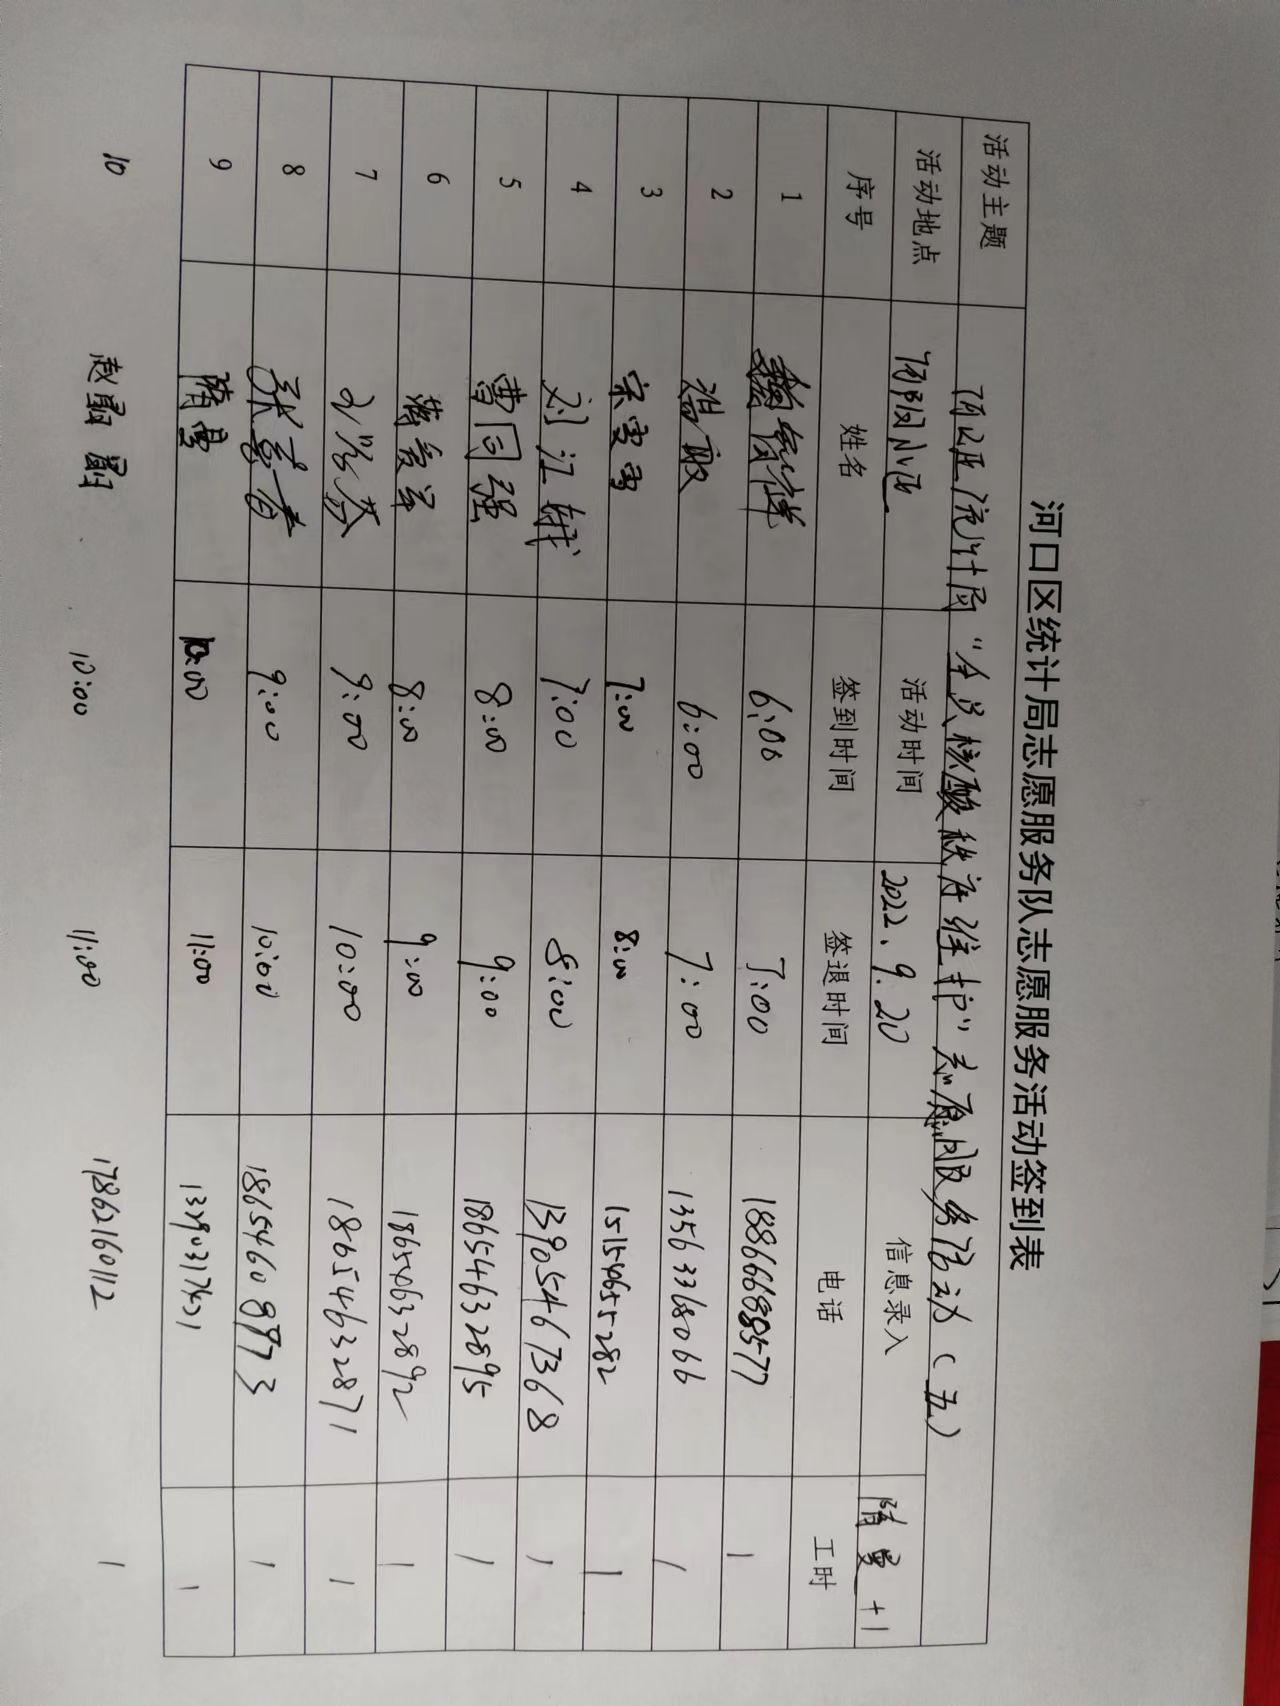 河口区统计局志愿服务队志愿服务活动签到表
活动主题 河口区统计局“全员核酸秩序维护”志愿服务活动(五)
活动地点 河阳小区 活动时间 2022.9.20 信息录入 隋曼 +1
序号 姓名 签到时间 签退时间 电话 工时
1 6:00 7:00 18866688577 1
2 温敏 6:00 7:00 13563368066 1
3 宋雪雷 7:00 8:00 15154655282 1
4 刘江娥 7:00 8:00 13905467368 1
5 曹同强 8:00 9:00 18654632895 1
6 8:00 9:00 18654632892 1
7 9:00 10:00 18654632871 1
8 9:00 10:00 18654608873 1
9 隋曼 10:00 11:00 1
10 赵 10:00 11:00 17862160112 1